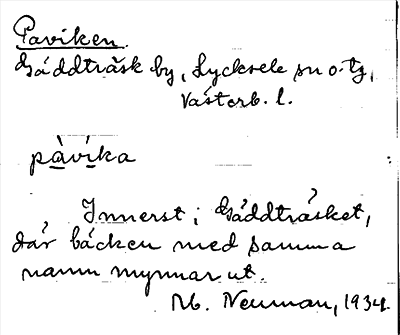 Paviken.
Gäddträsk by, Lycksele sn o. tg,
Västerb. l.
pàvíka
Innerst i Gäddträsket,
där bäcken med samma
namn mynnar ut.
M. Neuman, 1934.